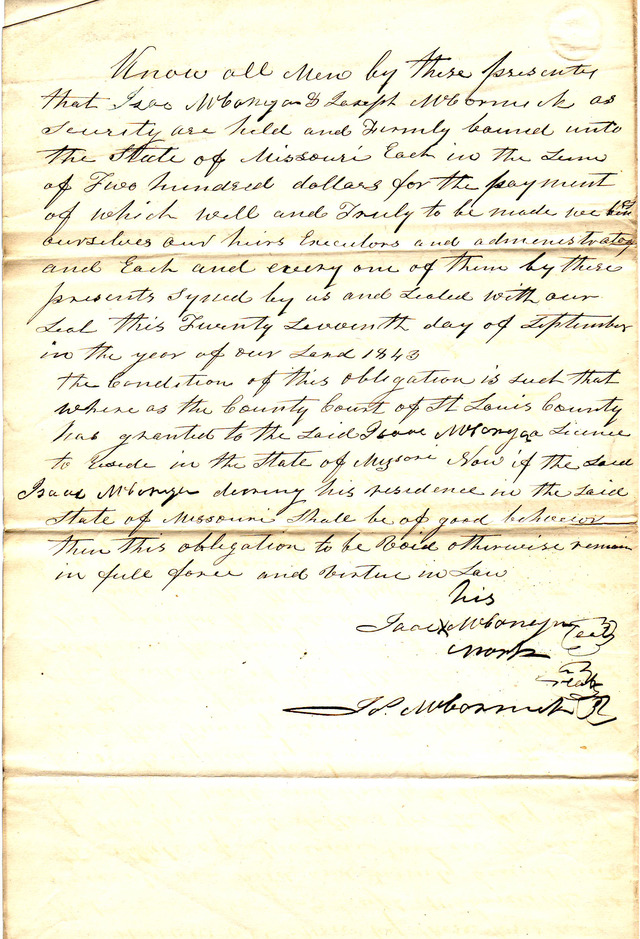 Know all Men by these presents
that Isac McConyga & Joseph McCormick as
Security are held and Firmly bound unto
the State of Missouri Each in the Sum
of Two hundred dollars for the payment
of which well and Truly to be made we
ourselves our heirs Executors and administrators
and Each and every one of them by these
presents Syned by us and Sealed with our
Seal this Twenty Sevventh day of September
in the year of our Lord 1843
the Condition of this obligation is such that
where as the County Court of St Louis County
has granted to the Said Isaac McConyga Licence
to Reside in the State of Missore Now if the Said
Isaac McConyga durring his residence in the Said
State of Missouri Shall be of good behavior
then this obligation to be Void otherwise remain
in full force and Virtue in Law
his
Isaac X McConyga Seal
mark
Seal
Js. McCormick